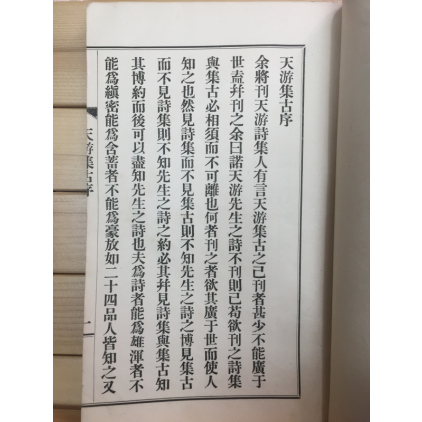 天游集古序
余將刊天游詩集人有言天游集古之已刊者甚少不能廣于
世盍幷刊之余曰諾天游先生之詩不刊則已苟欲刊之詩集
與集古必相須而不可離也何者刊之者欲其廣于世而使人
知之也然見詩集而不見集古則不知先生之詩之博見集古
而不見詩集則不知先生之詩之約必其幷見詩集與集古知
其博約而後可以盡知先生之詩也夫爲詩者能爲雄渾者不
能爲縝密能爲含蓄者不能爲豪放如二十四品人皆知之又
天游集古序
一